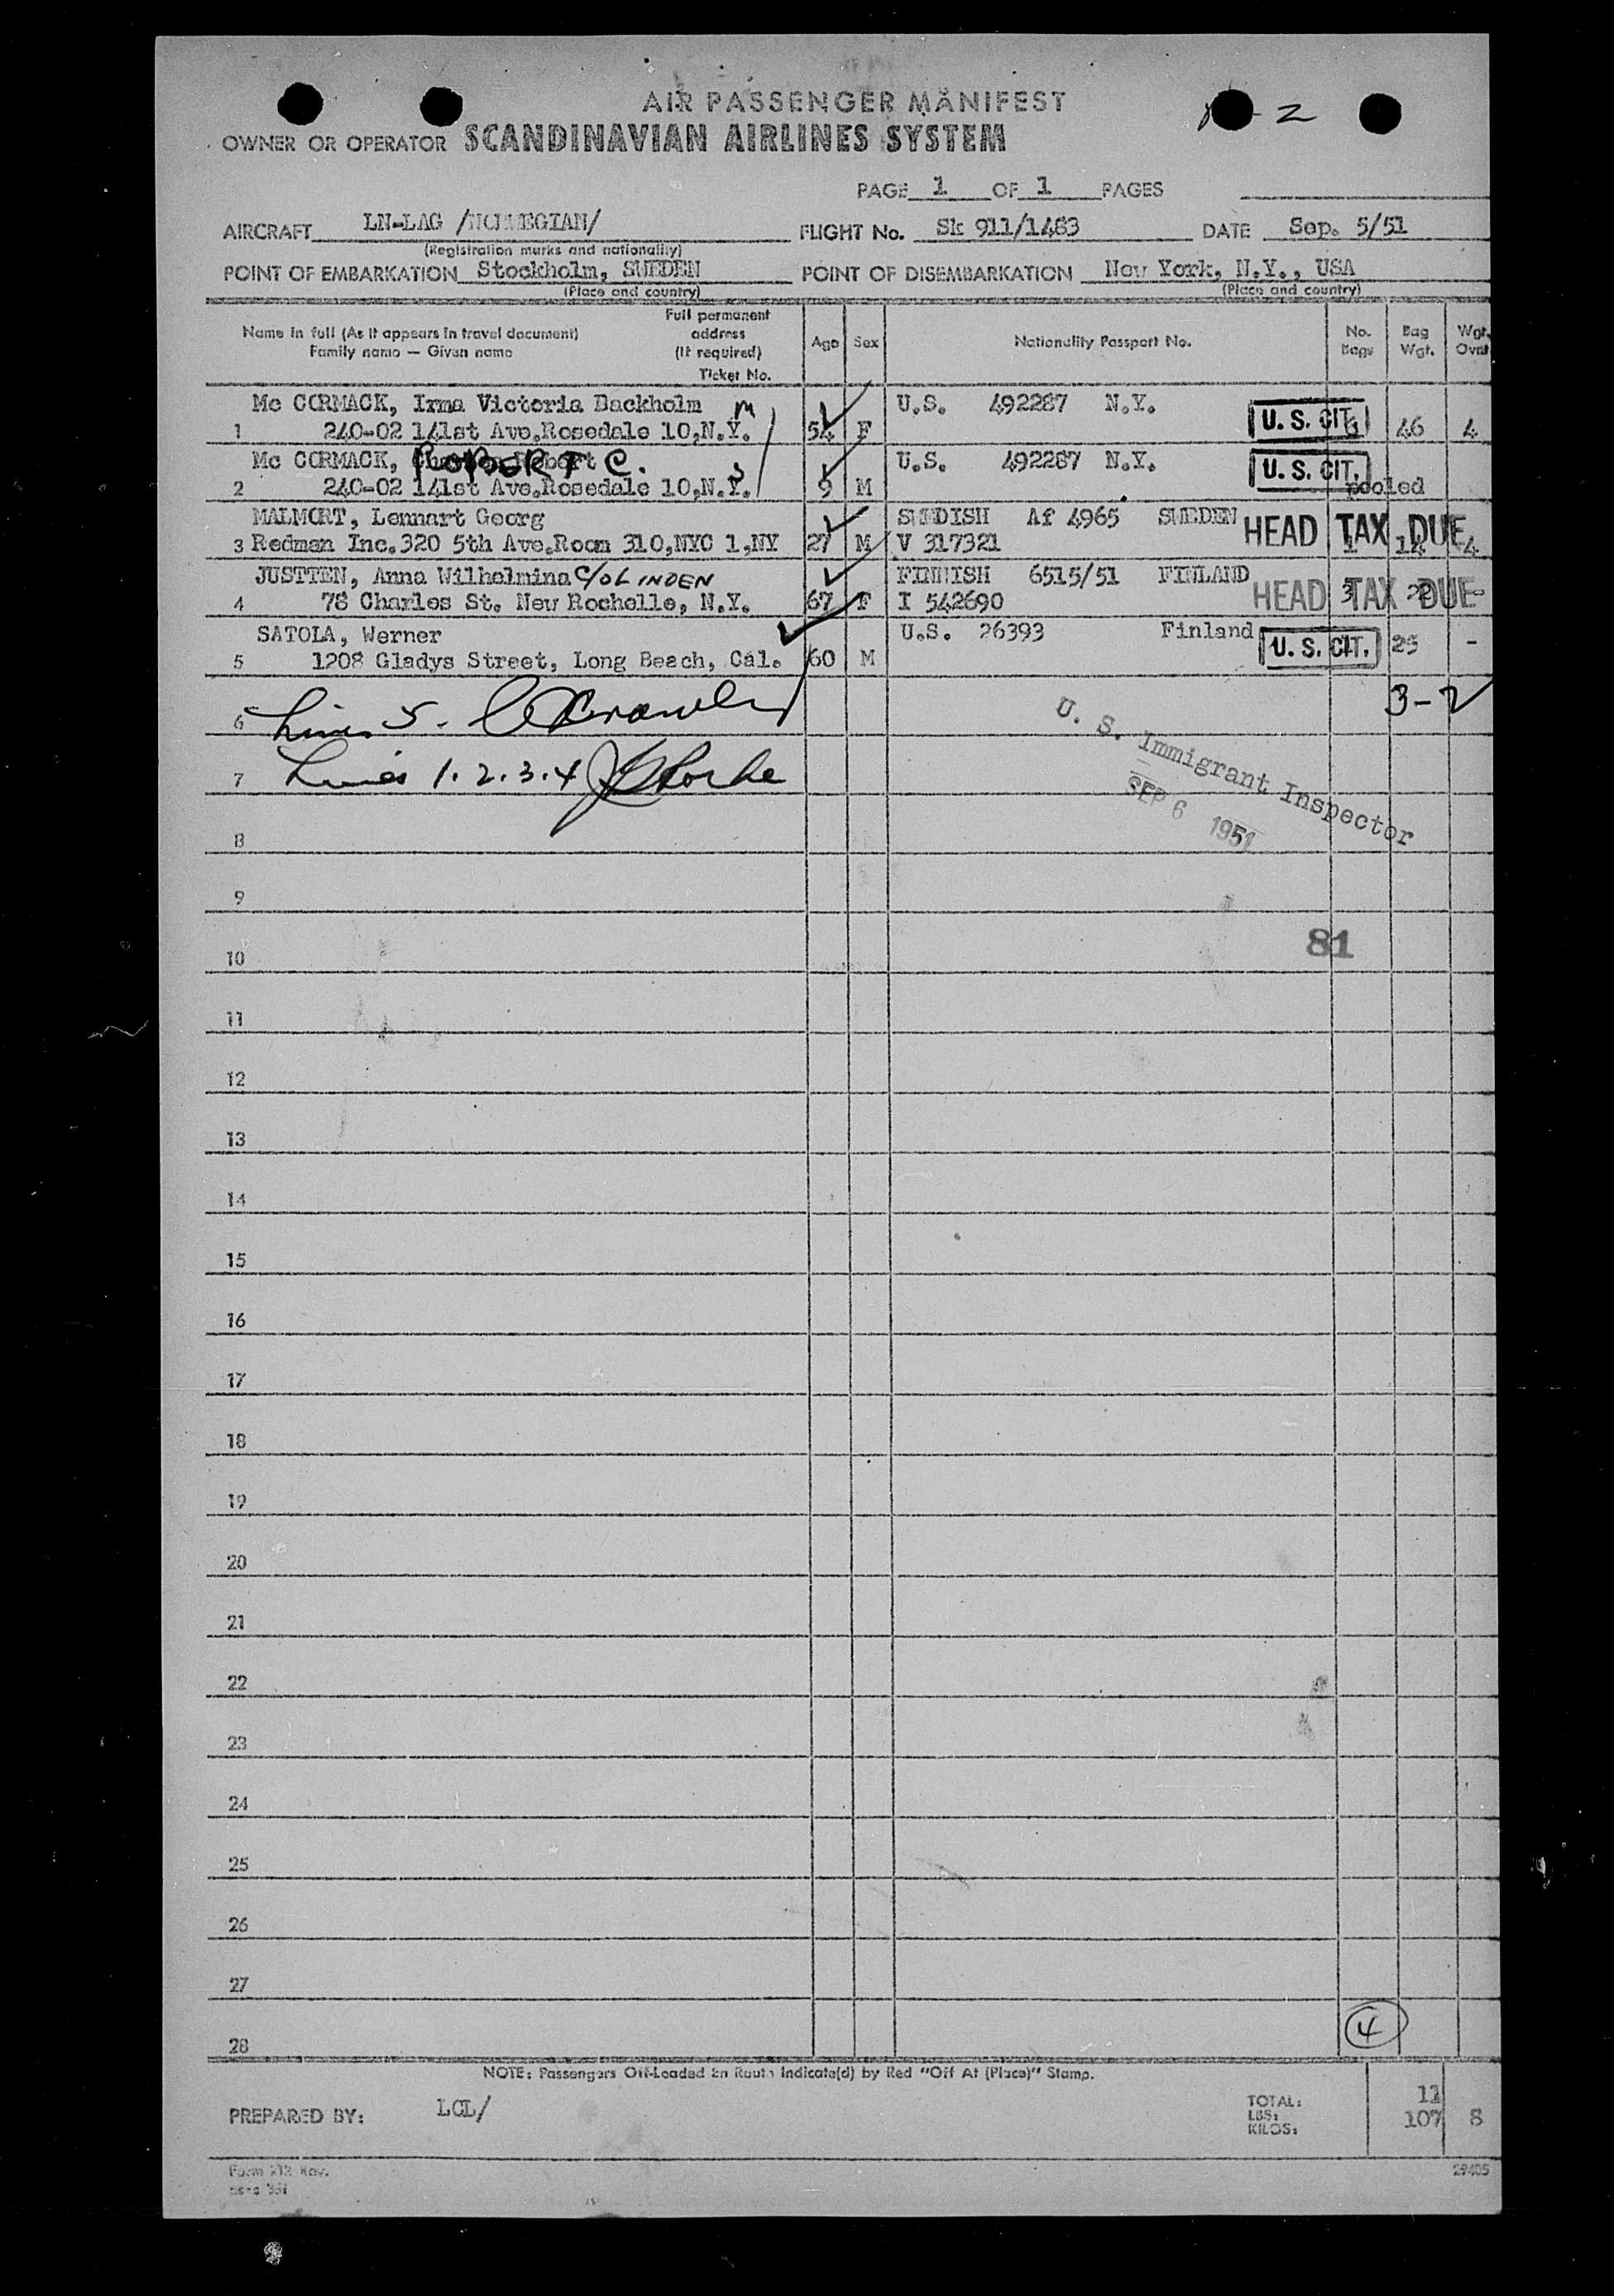 AIR PASSENGER MANIFEST
- 2
OWNER OR OPERATOR SCANDINAVIAN AIRLINES SYSTEM
PAGE 1 OF 1 PAGES
AIRCRAFT LN-LAG /NORWEGIAN/ FLIGHT No. Sk 911/1483 DATE Sep. 5/51
(Registration marks and nationality)
POINT OF EMBARKATION Stockholm, SWEDEN POINT OF DISEMBARKATION New York, N.Y., USA
(Place and country) (Place and country)
Name in full (As it appears in travel document) Family name — Given name Full permanent address (If required) Ticket No. Age Sex Nationality Passport No. No. Bags Bag Wgt. Wgt. Ovnt
Mc CORMACK, Irma Victoria Backholm M U.S. 492287 N.Y. U. S. CIT.
1 240-02 141st Ave.Rosedale 10,N.Y. 54 F 46 4
Mc CORMACK, Robert ROBERT C. U.S. 492287 N.Y. U. S. CIT.
2 240-02 141st Ave.Rosedale 10,N.Y. S 9 M pooled
MALMORT, Lennart Georg SWEDISH Af 4965 SWEDEN HEAD TAX DUE
3 Redman Inc.320 5th Ave.Room 310,NYC 1,NY 27 M V 317321 1 14 4
JUSTTEN, Anna Wilhelmina C/O LINDEN FINNISH 6515/51 FINLAND HEAD TAX DUE
4 78 Charles St. New Rochelle, N.Y. 67 F I 542690 3 22 -
SATOLA, Werner U.S. 26393 Finland U. S. CIT.
5 1208 Gladys Street, Long Beach, Cal. 60 M 25 -
6 Lines 5. 3-2
7 Lines 1. 2. 3. 4
U. S. Immigrant Inspector
SEP 6 1951
8
9
81
10
11
12
13
14
15
16
17
18
19
20
21
22
23
24
25
26
27
4
28
NOTE: Passengers Off-Loaded En Route Indicate(d) by Red "Off At (Place)" Stamp.
PREPARED BY: LCL/
TOTAL: 11
LBS:
KILOS: 107 8
Form 212 Rev.
29405